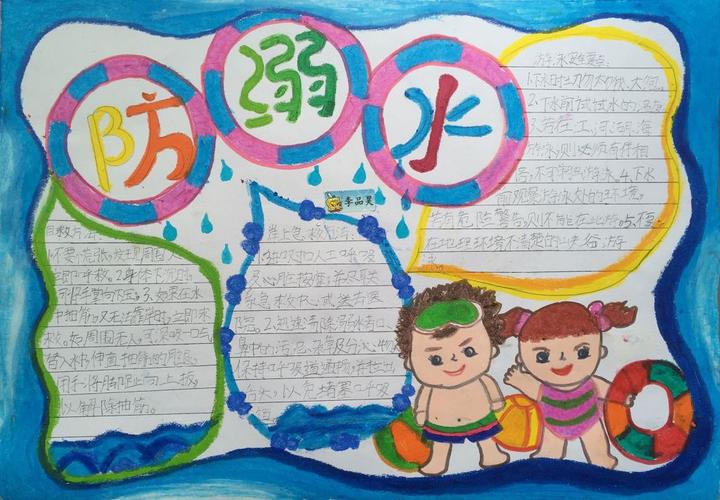 防溺水
李品昊
游泳注意事项:
1.下水时切勿太饿、太饱。
2.下水前试试水的温度
3.若在江、河、湖、海
游泳,则必须有伴相
陪,不可单独游泳.4.下水
前观察游泳处的环境,
若有危险警告,则不能在此游.5.不要
在地理环境不清楚的山夹谷游
泳
自救方法:
1.不要慌张,发现周围人
立即呼救。2.身体下沉时,
可将手掌向下压。3.如果在水
中抽筋,又无法靠岸时,立即求
救。如周围无人,可深吸一口气
潜入水中,伸直抽筋的那腿,
用手将脚趾向上扳,
以解除抽筋。
岸上急救方法:
1.持续人工呼吸
及心肺按摩,并及联
系急救中心或送去医
院。2.迅速清除溺水者口
鼻中的污泥、杂草及分泌物,
保持呼吸道通畅,并拉出
舌头,以免堵塞呼吸
道